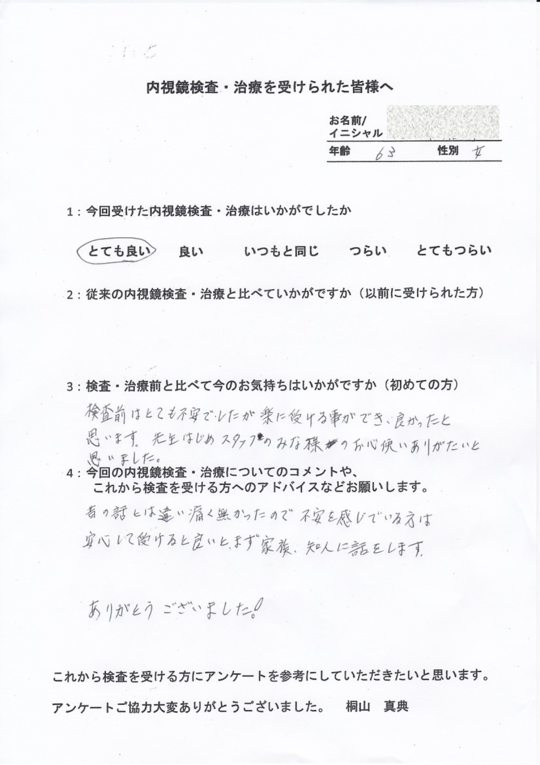 内視鏡検査・治療を受けられた皆様へ
お名前/
イニシャル
年齢 63 性別 女
1：今回受けた内視鏡検査・治療はいかがでしたか
とても良い 良い いつもと同じ つらい とてもつらい
2：従来の内視鏡検査・治療と比べていかがですか（以前に受けられた方）
3：検査・治療前と比べて今のお気持ちはいかがですか（初めての方）
検査前はとても不安でしたが楽に受ける事ができ、良かったと
思います。先生はじめスタッフのみな様のお心使いありがたいと
思いました。
4：今回の内視鏡検査・治療についてのコメントや、
これから検査を受ける方へのアドバイスなどお願いします。
昔の話とは違い痛く無かったので不安を感じている方は
安心して受けると良いと、まず家族、知人に話をします。
ありがとうございました！
これから検査を受ける方にアンケートを参考にしていただきたいと思います。
アンケートご協力大変ありがとうございました。 桐山 真典